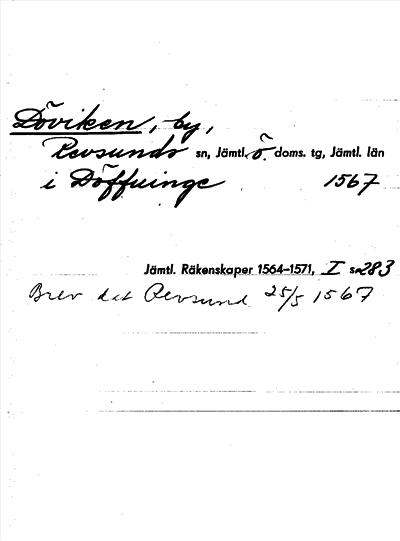 Döviken, by,
Revsunds sn, Jämtl. ö doms. tg, Jämtl. län
i Döffuinge 1567
Jämtl. Räkenskaper 1564–1571, I s. 283
Brev dat Revsund 25/5 1567